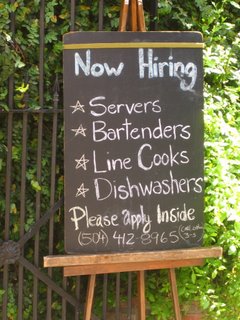 Now Hiring
☆ Servers
☆ Bartenders
☆ Line Cooks
☆ Dishwashers
Please apply Inside
(504) 412-8965